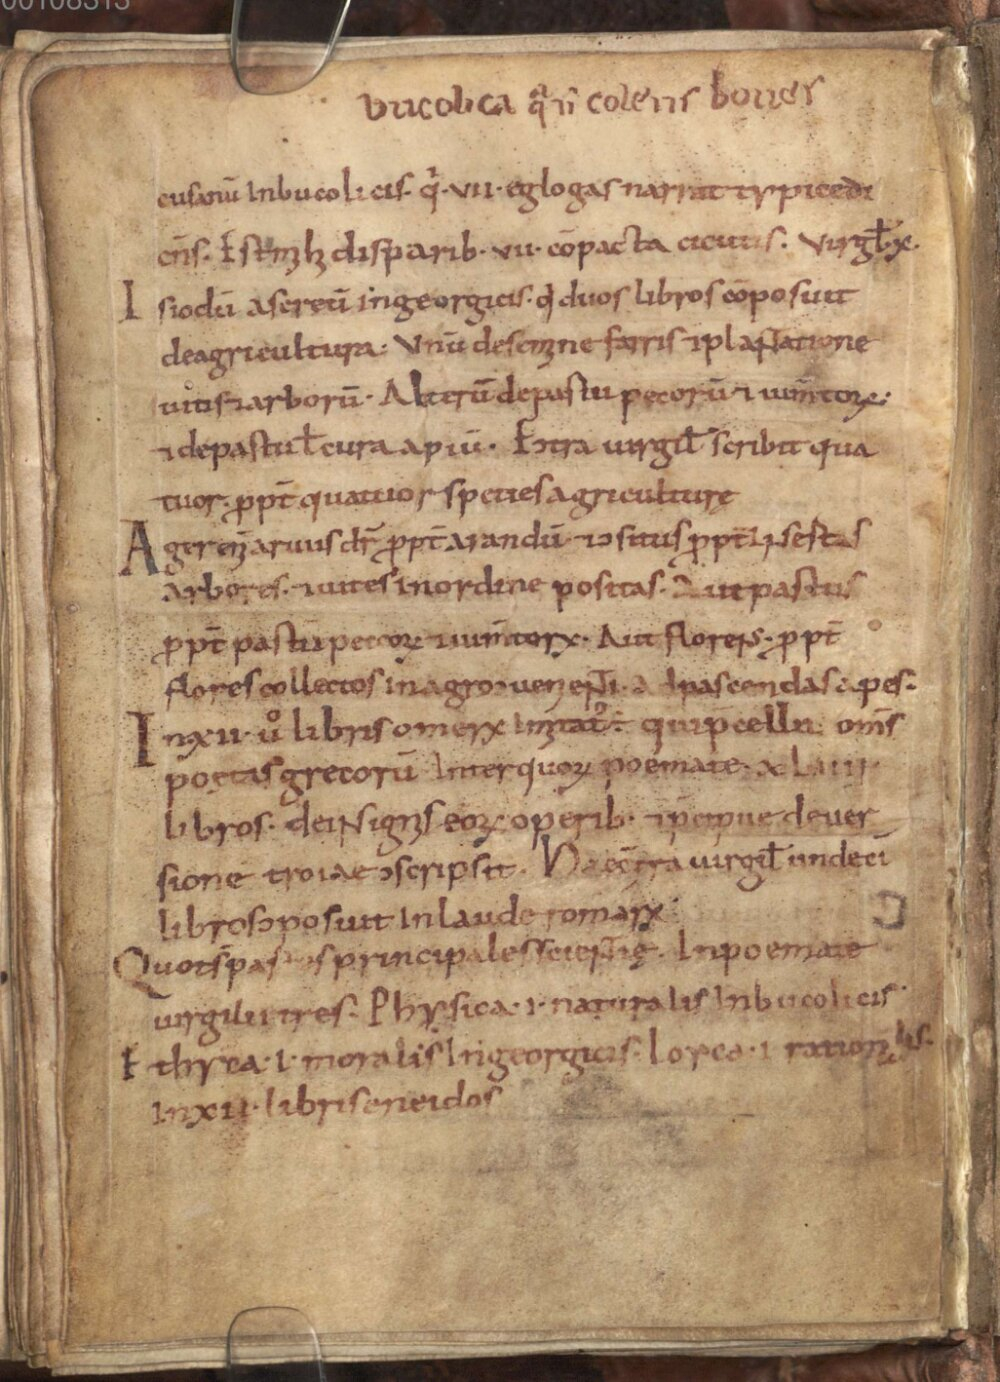 00108313
bucolica q̄si colens boues
cusanū In bucolicis. q̄. vii. eglogas narrat typice di
cēs. Est m̄ dispārib. vii. cōpacta cicutis. Virgł. x.
Isiodū ascreū in georgicis. q̄ duos libros cōposuit
de agricultura. Vnū de semine farris ⁊ plantatione
uitis ⁊ arborū. Alterū de pastu pecorū ⁊
⁊ de pastu ł cura apiū. Virgił scribit qua
tuor. ꝓpt̄ quattuor species agriculturę
Ager aruus dr̄ ꝓpt̄ arandū. ꝓpt̄
arbores. ⁊ uites in ordine positas. Aut pastus
ꝓpt̄ pastū pecoꝝ Aut floreus. ꝓpt̄
flores collectos in agro ad pascendas apes.
In xii. ū libris omerx qui p̄cellit om̄s
poetas grecorū Inter quoꝝ poemate xLuiii
libros. de insignis eoꝝ operib. ⁊ p̄cipue de uer
sione troiae ↄscripsit. virgił undeci
libros ↄposuit In laude romaꝝ
Quot sp̄a principales scientię. In poemate
virgilii tres. Physica .i. naturalis In bucolicis
Ethyca .i. moralis In georgicis. Loyca .i. rationalis.
In xii. libris eneidos